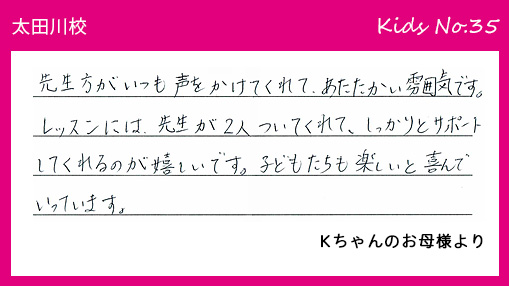 太田川校
Kids No.35
先生方がいつも声をかけてくれて、あたたかい雰囲気です。
レッスンには、先生が2人ついてくれて、しっかりとサポート
してくれるのが嬉しいです。子どもたちも楽しいと喜んで
いっています。
Kちゃんのお母様より